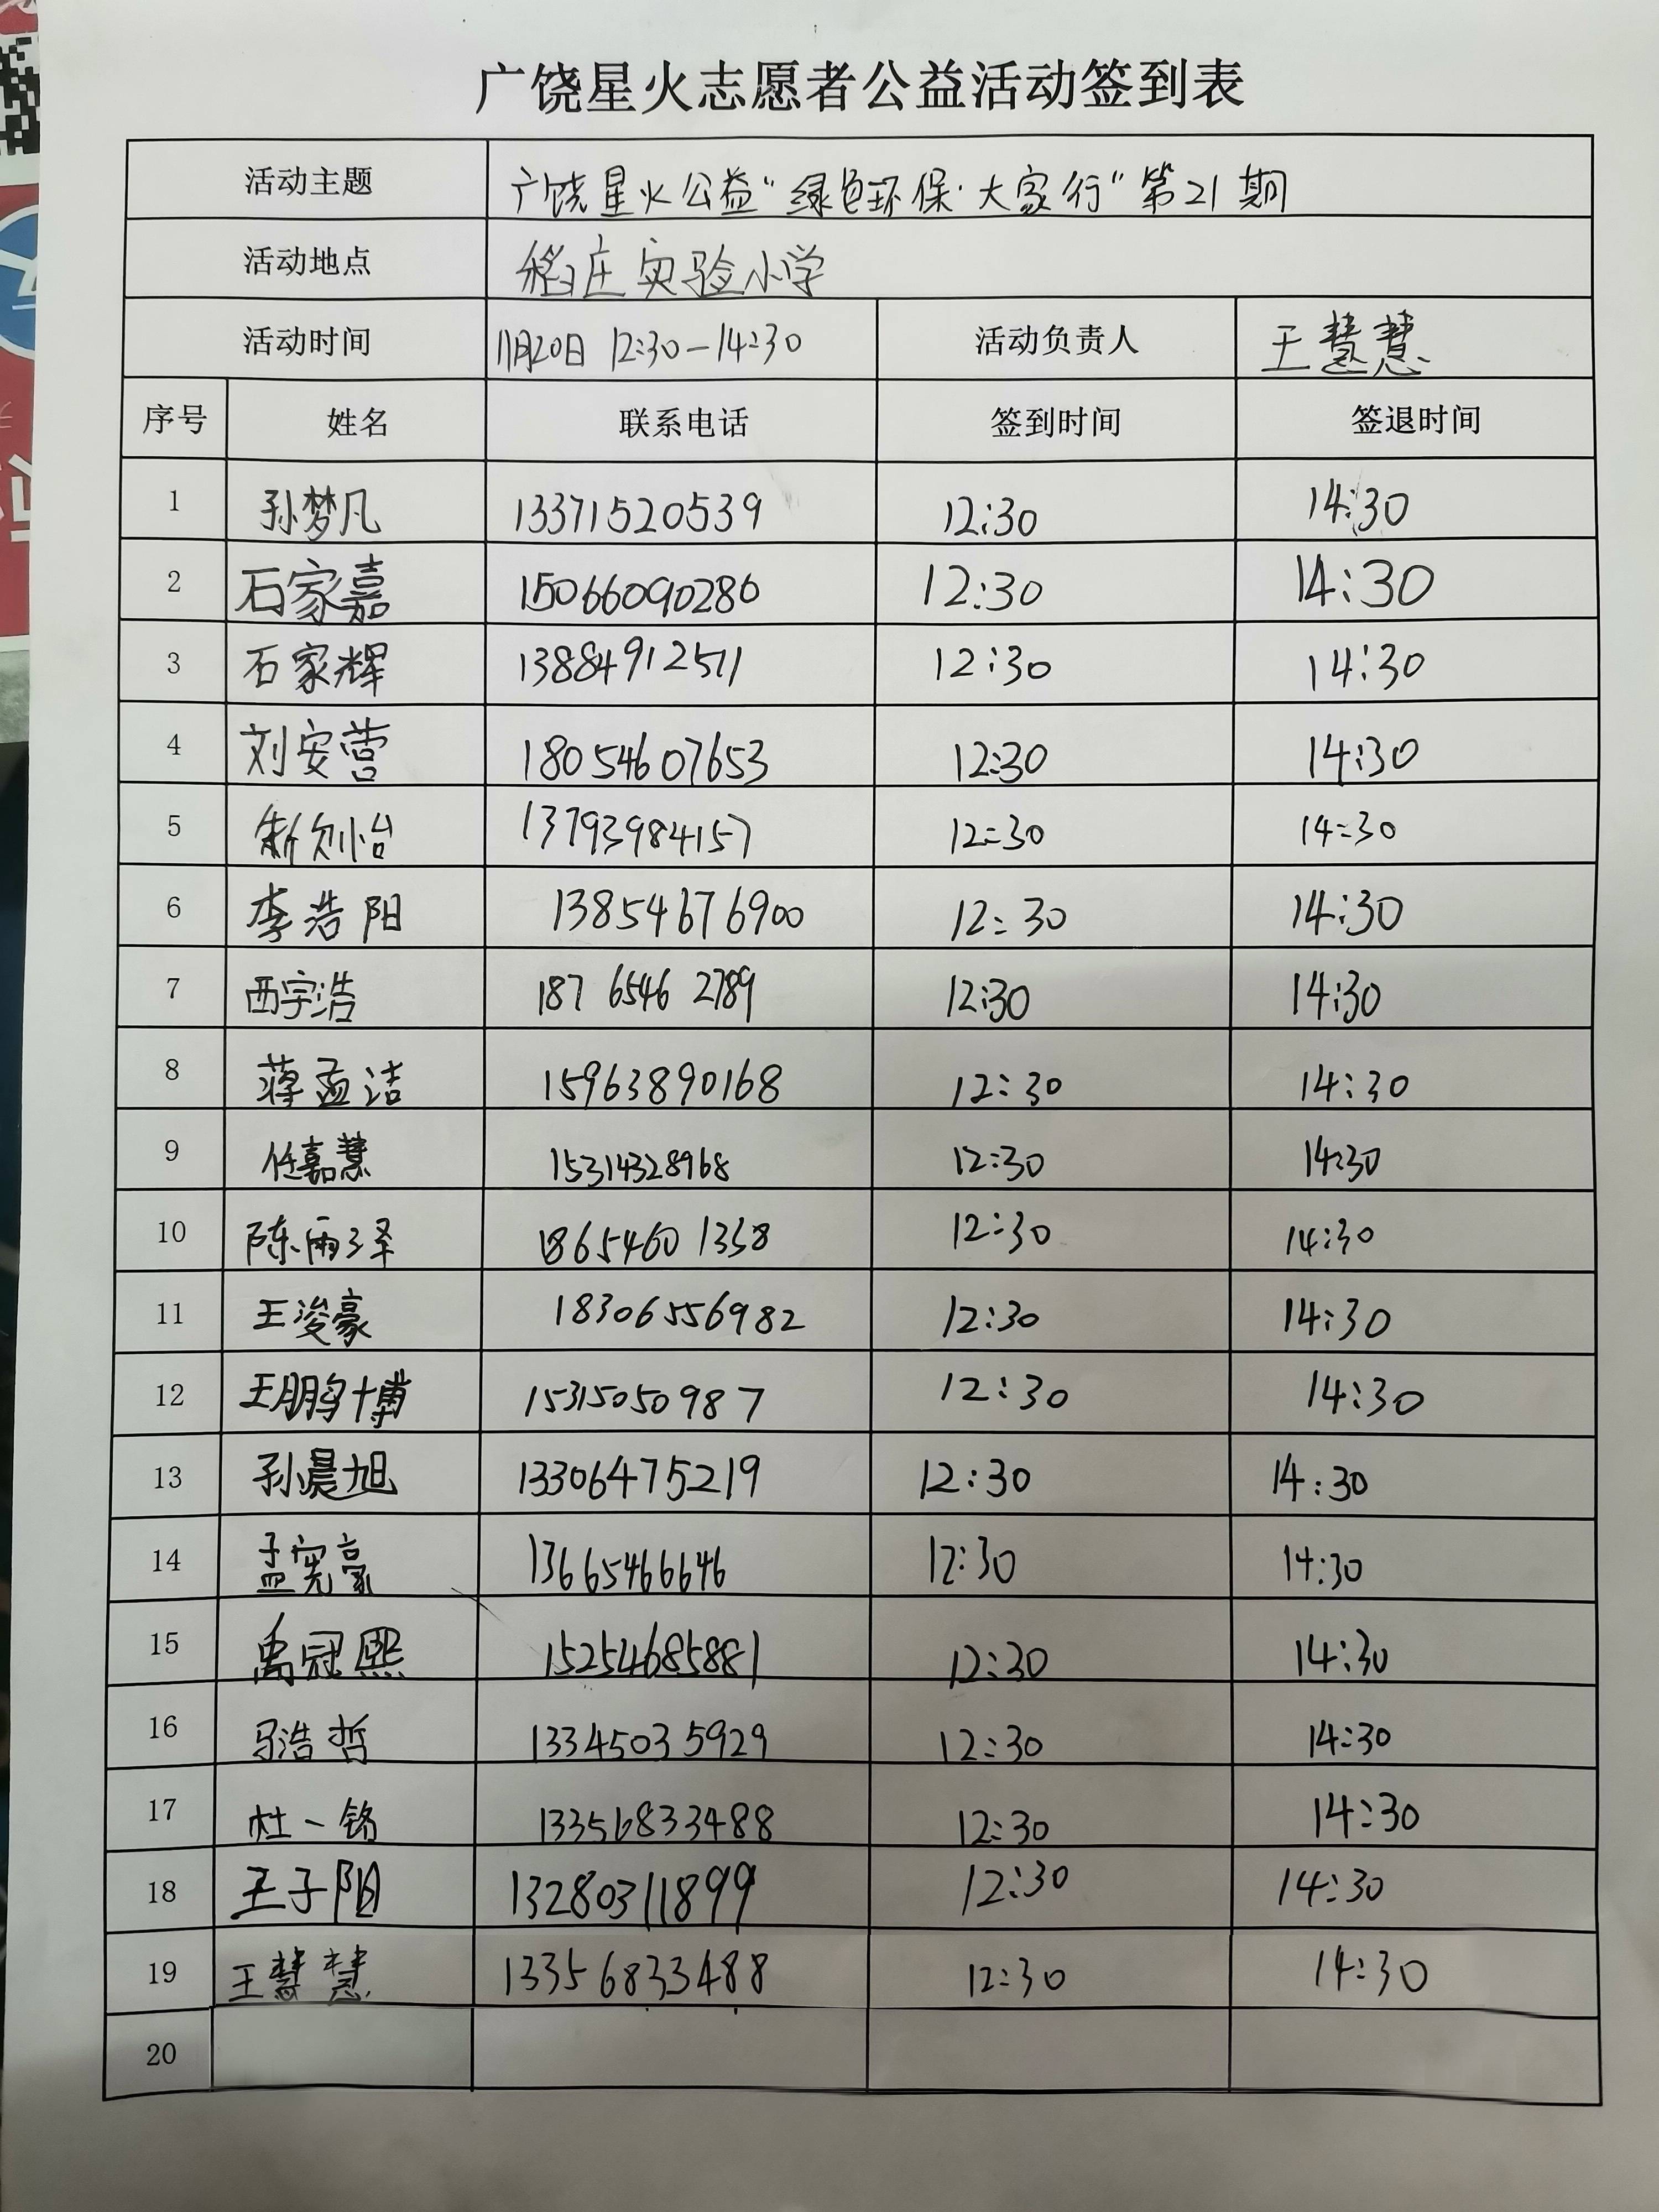 广饶星火志愿者公益活动签到表
活动主题 广饶星火公益"绿色环保·大家行"第21期
活动地点 稻庄实验小学
活动时间 11月20日 12:30-14:30 活动负责人 王慧慧
序号 姓名 联系电话 签到时间 签退时间
1 孙梦凡 13371520539 12:30 14:30
2 石家嘉 15066090286 12:30 14:30
3 石家辉 13884912511 12:30 14:30
4 刘安营 18054607653 12:30 14:30
5 13793984157 12:30 14:30
6 李浩阳 13854676900 12:30 14:30
7 西宇浩 187 6546 2789 12:30 14:30
8 蒋孟洁 15963890168 12:30 14:30
9 任嘉慧 15314328968 12:30 14:30
10 陈雨泽 1865460 1358 12:30 14:30
11 王浚豪 18306556982 12:30 14:30
12 王鹏博 15315050987 12:30 14:30
13 孙晨旭 13306475219 12:30 14:30
14 孟宪豪 13665466646 12:30 14:30
15 禹冠熙 15254685881 12:30 14:30
16 马浩哲 13345035929 12:30 14:30
17 杜一铭 13356833488 12:30 14:30
18 王子阳 13280311899 12:30 14:30
19 王慧慧 13356833488 12:30 14:30
20